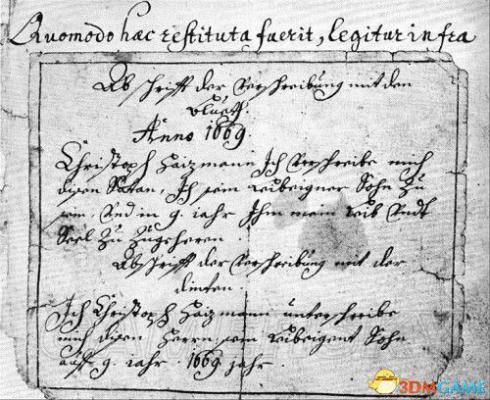 Quomodo hæc restituta fuerit, legitur infra
Abschrifft der Verschreibung mit den
Bluett
Anno 1669
Christoph Haizmann Ich verschreibe mich
disen Satan, Ich sein leibeigner Sohn zu
sein, Vnd in 9. iahr Ihm mein leib Vndt
Seel zu zugeheren
Abschrifft der Verschreibung mit der
dinten.
Ich Christoph Haizmann unterschreibe
mich disen Herrn sein leibeigent Sohn
auff 9. iahr. 1669 jahr
3DMGAME